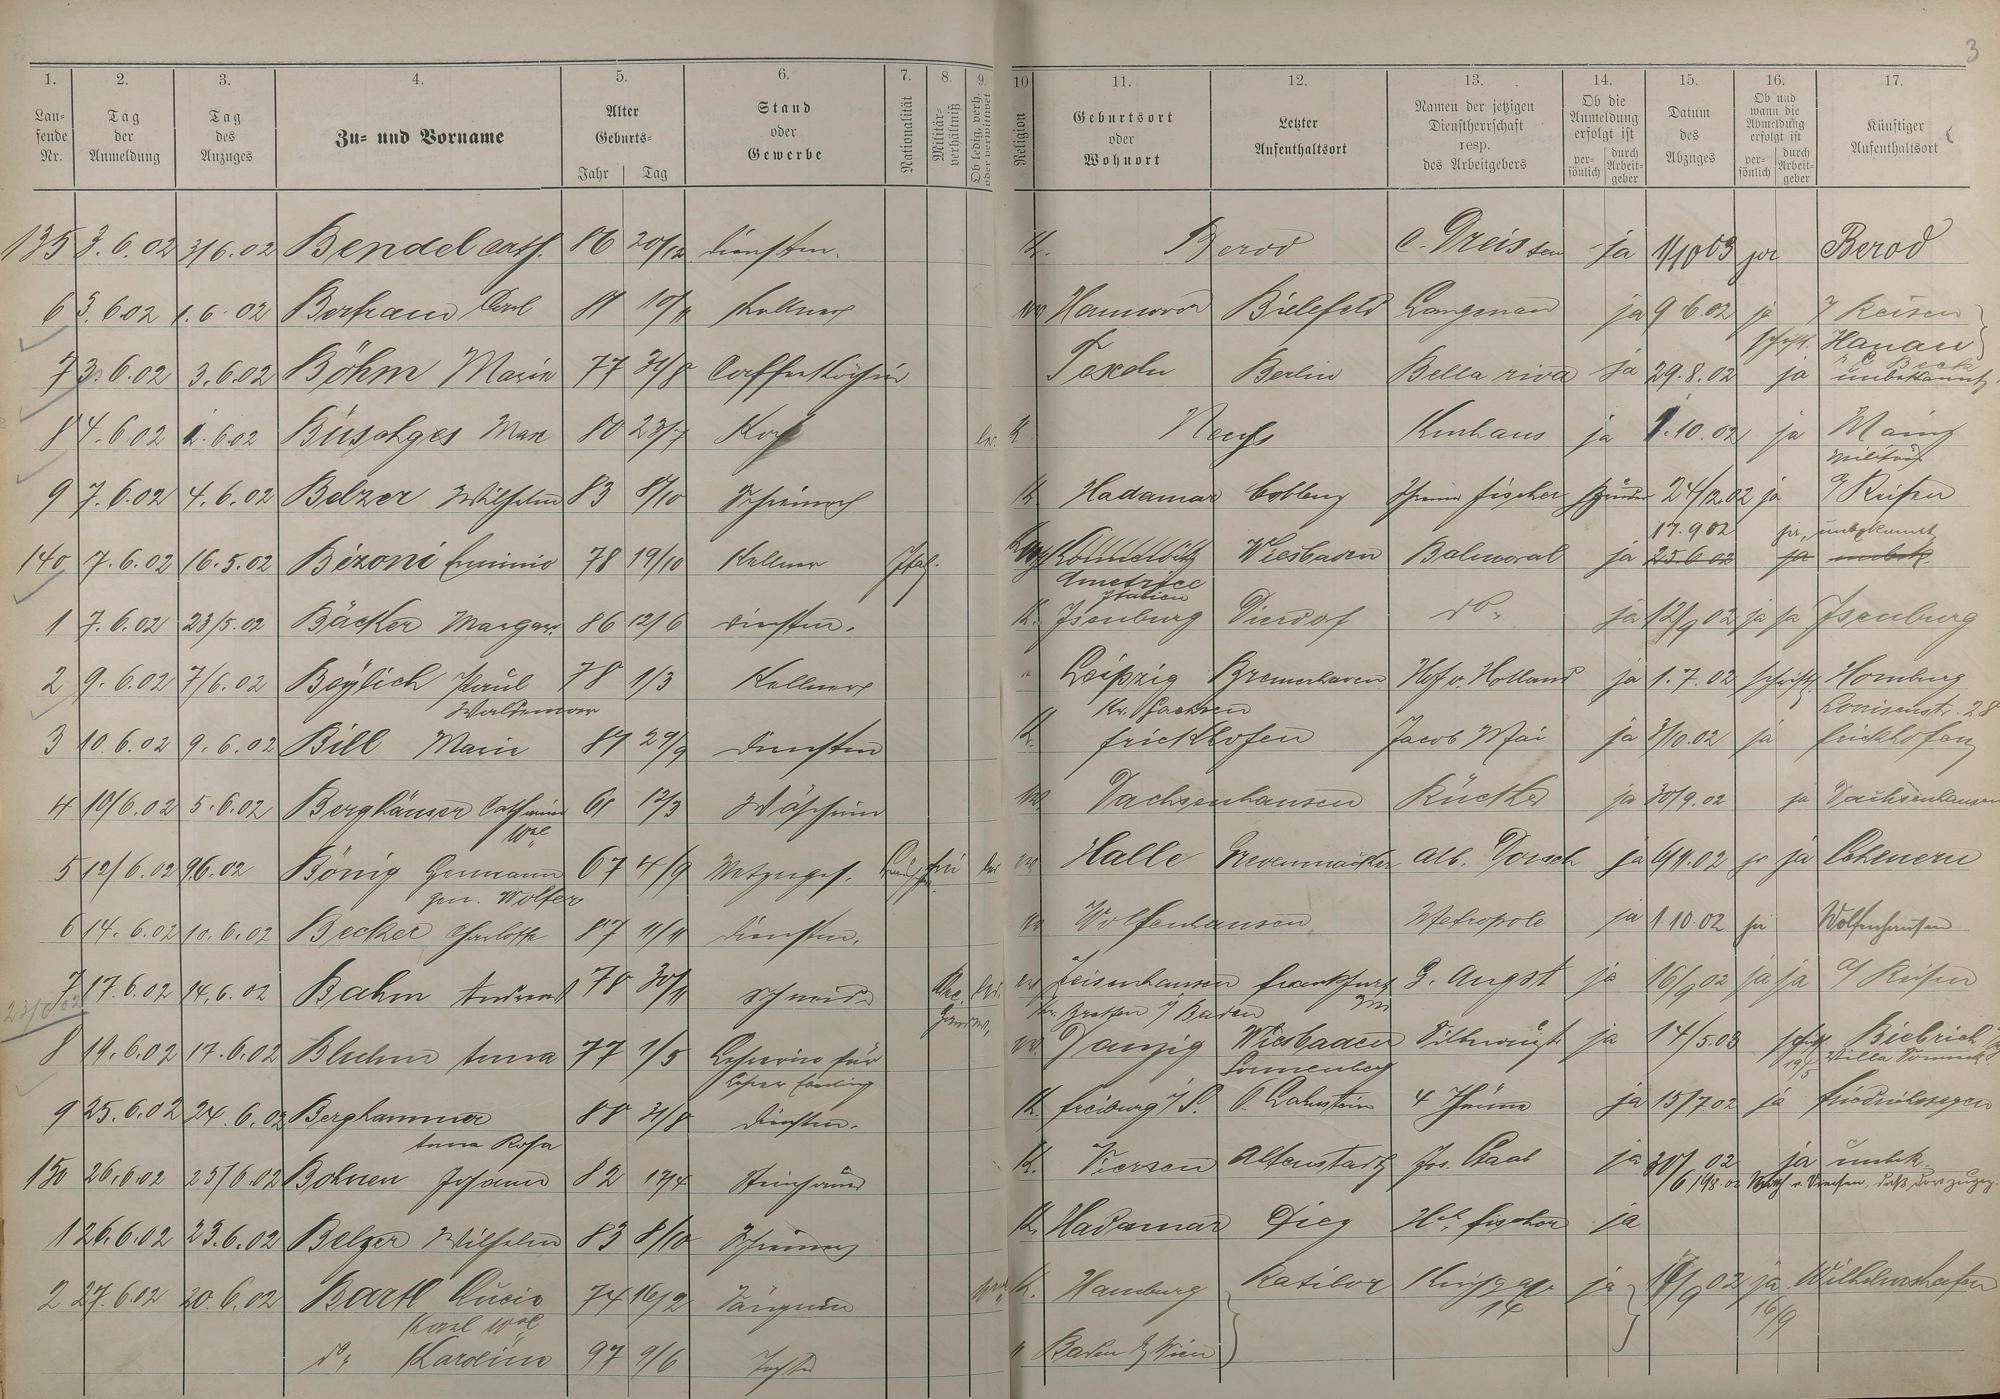 3
1. 2. 3. 4. 5. 6. 7. 8. 9. 10 11. 12. 13. 14. 15. 16. 17.
Lau-
fende
Nr.
Tag
der
Anmeldung
Tag
des
Anzuges
Zu- und Vorname
Alter
Geburts-
Jahr Tag
Stand
oder
Gewerbe
Nationalität
Militär-
verhältniß
Ob ledig, verh.
oder verwittwet
Religion
Geburtsort
oder
Wohnort
Letzter
Aufenthaltsort
Namen der jetzigen
Dienstherrschaft
resp.
des Arbeitgebers
Ob die
Anmeldung
erfolgt ist
per-
sönlich
durch
Arbeit-
geber
Datum
des
Abzuges
Ob und
wann die
Abmeldung
erfolgt ist
per-
sönlich
durch
Arbeit-
geber
Künftiger
Aufenthaltsort
135 3.6.02 3/6.02 Bendel Cath. 86 20/12 dienstm. K. Berod C. Dreis ja 1/10 03 ja Berod
6 3.6.02 1.6.02 Bertram Carl 81 10/11 Kellner Hannover Bielefeld Langenau ja 9.6.02 ja Reisen
Hanau
7 3.6.02 3.6.02 Böhm Marie 77 31/8 Caffeeköchin Berlin Bella riva ja 29.8.02 ja unbekannt
8 4.6.02 1.6.02 Büschges Max 80 23/7 Koch K Neuss Kurhaus ja 1.10.02 ja Mainz
Militär
9 7.6.02 4.6.02 Belzer Wilhelm 83 8/10 Schreiner K. Hadamar Coblenz Fischer 24/12.02 ja a/ Reisen
17.9 02 ja, unbekannt
140 7.6.02 16.5.02 Bizoni Erminio 78 19/10 Kellner Ital. Wiesbaden Balmoral ja 25.6.02 ja unbek.
Ametrice
Italien
1 7.6.02 23/5.02 Bäcker Margar. 86 12/6 dienstm. K. Isenburg Dierdof do. ja 12/9 02 ja ja Isenburg
2 9.6.02 7/6.02 Beylich Paul 78 1/3 Kellner " Leipzig Bremerhaven Hof v. Holland ja 1.7.02 schriftl. Homburg
Waldemar Kr. Sachsen Louisenstr. 28
3 10.6.02 9.6.02 Bill Marie 87 29/9 dienstm K. Frickhofen Jacob Mai ja 3/10.02 ja Frickhofen
4 10/6.02 5.6.02 Berghäuser Catharine 61 12/3 Wäscherin Dachsenhausen Rücker ja 30/9.02 ja Dachsenhausen
Wwe
5 12/6.02 9 6.02 Bönig Hermann 67 4/9 Metzgerges. Halle Grevenmacher Alb. Dorsch ja 6/11.02 ja ja
gen. Wolfer
6 14.6.02 10.6.02 Becker Charlotte 87 11/11 dienstm. Wolfenhausen Metropole ja 1 10 02 ja Wolfenhausen
7 17.6.02 14.6.02 Bahm Andreas 78 30/11 Schneider Zeisenhausen Frankfurt G. Augst ja 16/9 02 ja ja a/ Reisen
Kr. Bretten i/ Baden
8 19.6.02 17.6.02 Bluhm Anna 77 1/5 Danzig Wiesbaden ja 14/5.03 Biebrich
Sonnenberg 19/5 Villa
9 25.6.02 24.6.02 Berghammer 88 31/8 dienstm. K. Freiburg i/ S. O. Lahnstein 4 Thürme ja 15/7 02 ja Friedrichssegen
Anna Rosa
150 26.6.02 25/6.02 Bohnen Johann 82 17/4 Steinhauer K. Viersen Altenstadt Jos. Staab ja 30/6 02 ja unbek.
1 26.6.02 23.6.02 Belzer Wilhelm 83 8/10 Schreiner K. Hadamar Diez Hch. Fischer ja
2 27.6.02 20.6.02 Bartl Lucie 74 16/2 Sängerin K. Hamburg Ratibor 14 ja 17/9 02 ja Wilhelmshafen
Karl Wwe 16/9
do. Karoline 97 9/6 Tochter " Baden b/ Wien